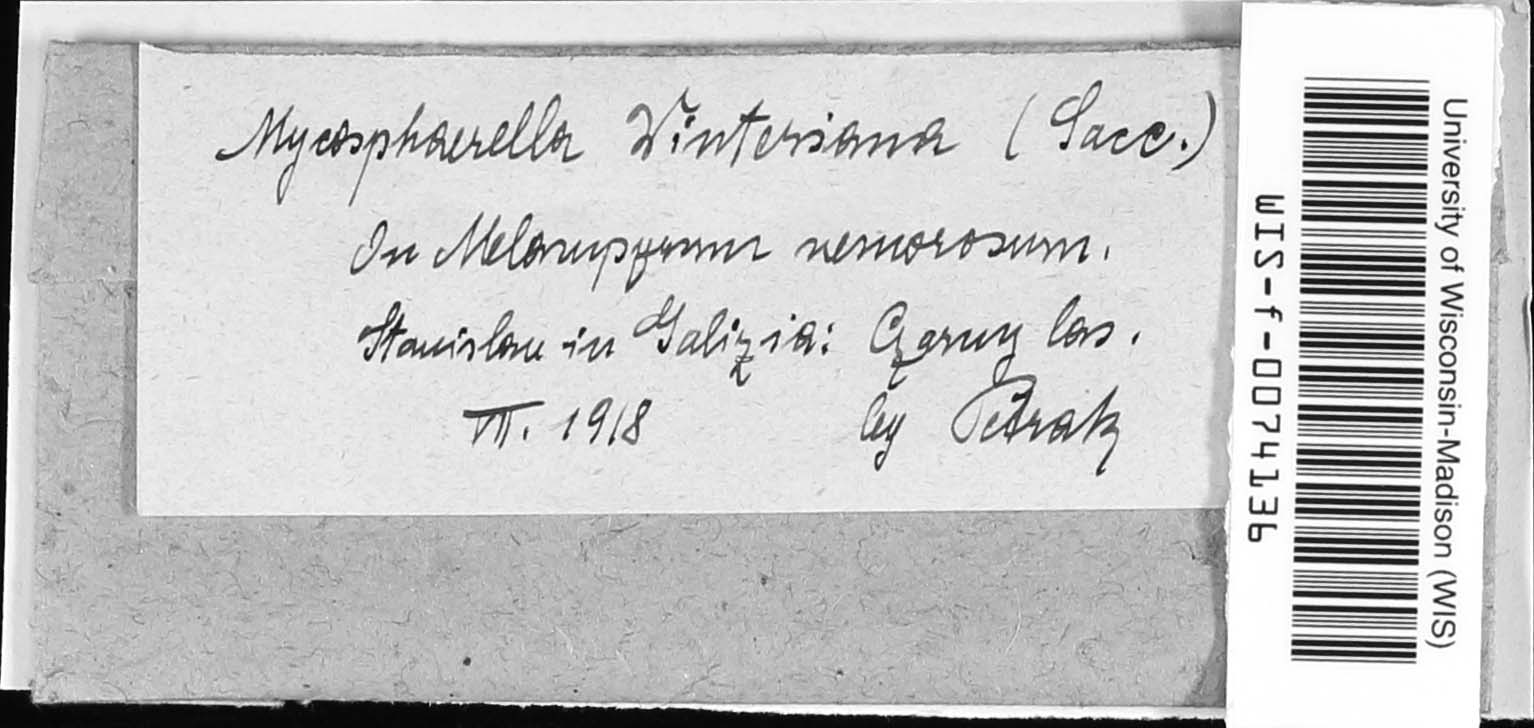 Mycosphaerella Winteriana (Sacc.)
On Melampyrum nemorosum.
Stanislau in Galizia: Czarny las.
VII. 1918 leg Petrak
University of Wisconsin-Madison (WIS)
WIS-f-0074136